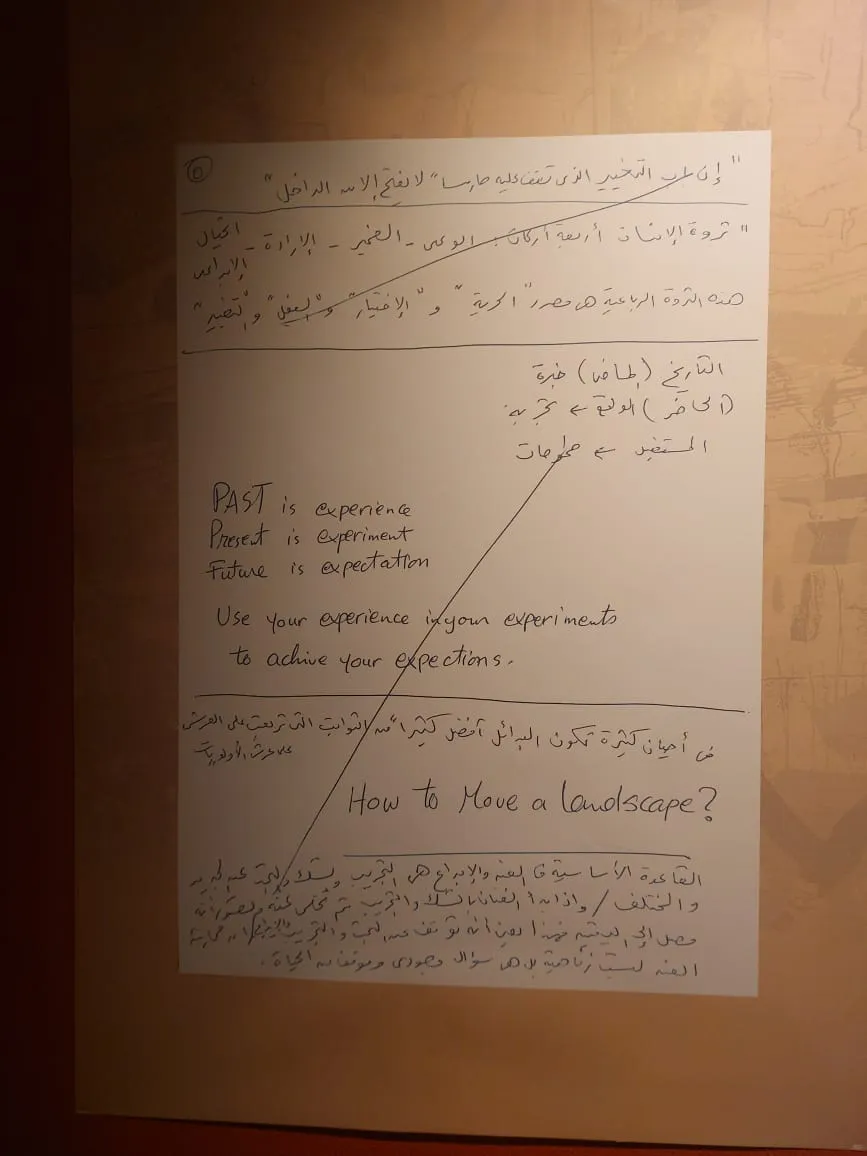 "إن باب التغيير الذي تقف عليه حارسا" لا يفتح إلا من الداخل"
" ثروة الإنسان أربعة أركان: الوعى - الضمير - الإرادة - الخيال
الإبداعى
هذه الثروة الرباعية هى مصدر "الحرية" و "الإختيار" و "العقل" و "التغيير"
التاريخ (الماضى) خبرة
(الحاضر) الواقع ← تجربة
المستقبل ← طموحات
PAST is experience
Present is experiment
Future is expectation
Use your experience in your experiments
to achive your expections.
فى أحيان كثيرة تكون البدائل أفضل كثيراً من الثوابت التى تربعت على العرش
على عرش الأولويات
How to Move a landscape?
القاعدة الأساسية فى الفن والإبداع هى التجريب والشك والبحث عن الجديد
والمختلف / واذا بدأ الفنان بالشك والتجريب ثم تخلى عنه وتصور أنه
وصل إلى اليقين فهذا يعنى أنه توقف عن البحث والتجريب
الفن ليست زاهية بل هى سؤال وجودى وموقف من الحياة.